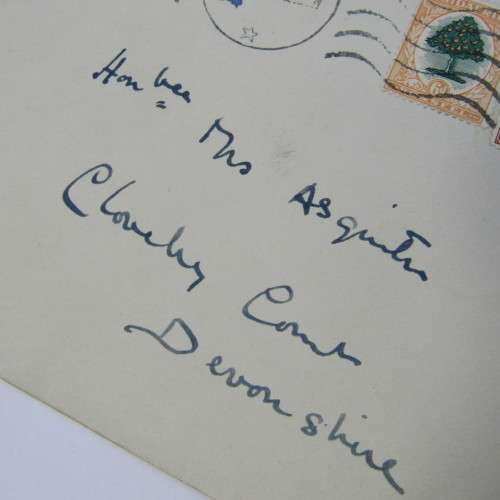 Hon ble
Mrs Asquith
Clovelly Court
Devonshire